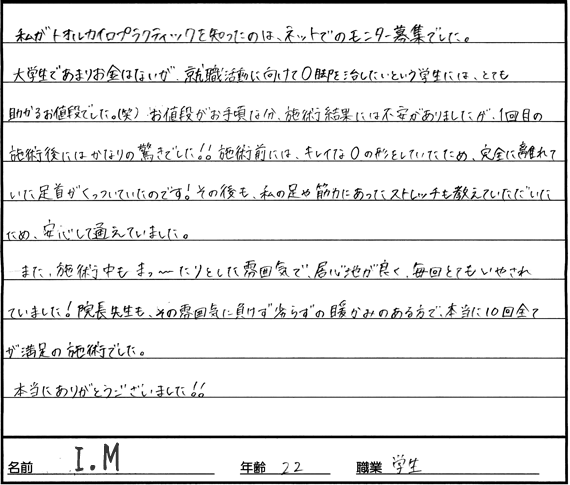 私がトオルカイロプラクティックを知ったのは、ネットでのモニター募集でした。
大学生であまりお金はないが、就職活動に向けてO脚を治したいという学生には、とても
助かるお値段でした。(笑) お値段がお手頃な分、施術結果には不安がありましたが、1回目の
施術後にはかなりの驚きでした!! 施術前には、キレイなOの形をしていたため、完全に離れて
いた足首がくっついていたのです! その後も、私の足や筋力にあったストレッチも教えていただいた
ため、安心して通えていました。
また、施術中もまったりとした雰囲気で、居心地が良く、毎回とてもいやされ
ていました! 院長先生も、その雰囲気に負けず劣らずの暖かみのある方で、本当に10回全て
が満足の施術でした。
本当にありがとうございました!!
名前 I.M 年齢 22 職業 学生